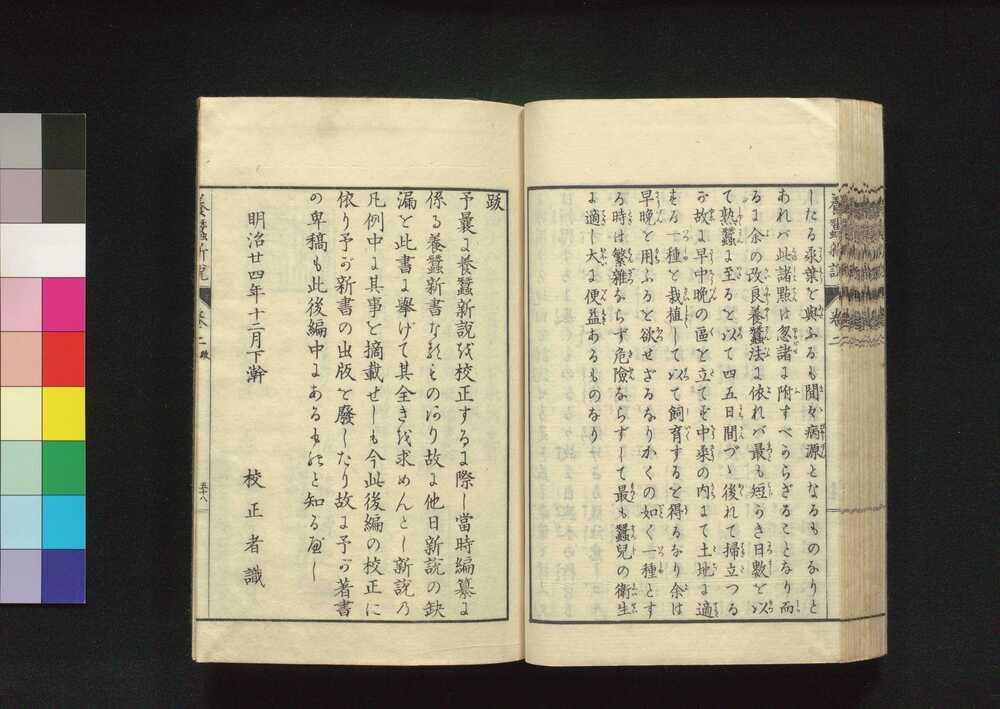 したる桑葉を與ふるも間々病源となるものなりと
あれバ此諸點は忽諸に附すべからざることなり而
るに余の改良養蠶法に依れバ最も短かき日數を以
て熟蠶に至るを以て四五日間づゝ後れて掃立つる
が故に早中晩の區を立てず中桑の内にて土地に適
する一種を栽植して以て飼育するを得るなり余は
早晩を用ふるを欲せざるなりかくの如く一種とす
る時は繁雜ならず危險ならずして最も蠶兒の衛生
に適し大に便益あるものなり
跋
予曩に養蠶新説を校正するに際し當時編纂に
係る養蠶新書なるものあり故に他日新説の缺
漏を此書に擧げて其全きを求めんとし新説乃
凡例中に其事を摘載せしも今此後編の校正に
依り予が新書の出版を廢したり故に予が著書
の卑稿も此後編中にあるものと知るべし
明治廿四年十二月下澣
校正者識
養蠶新説
卷二
跋
五十八